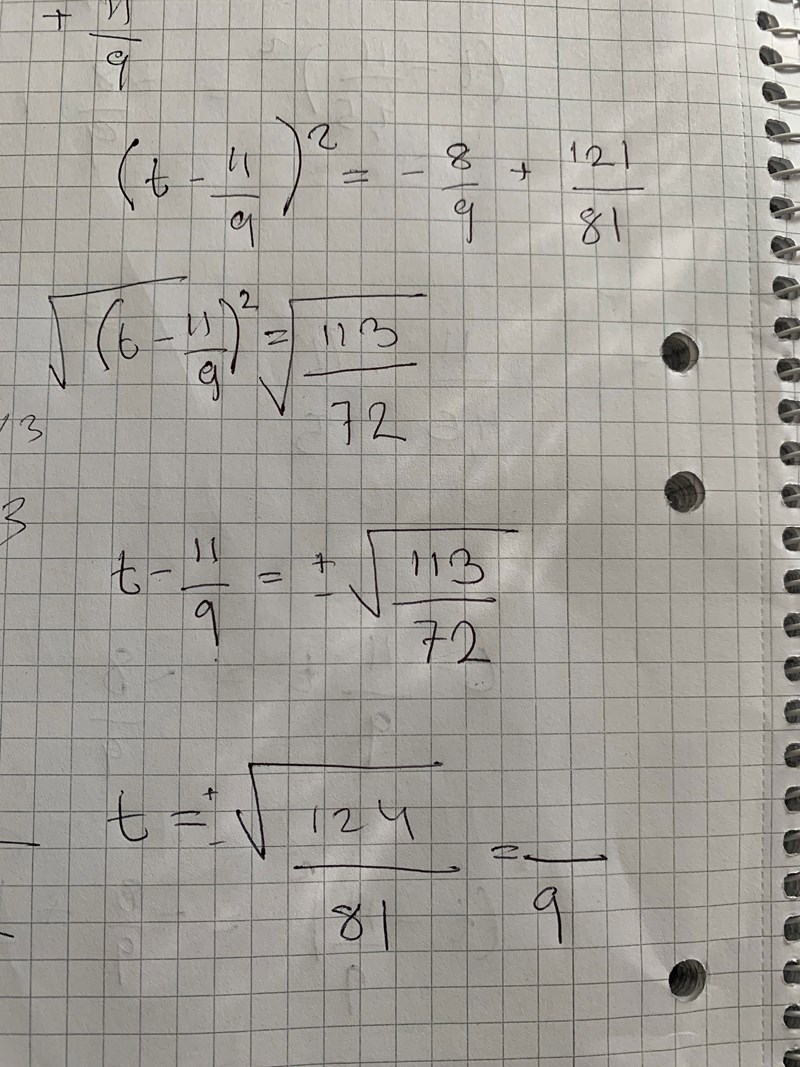 + 11/9
(t - 11/9)² = - 8/9 + 121/81
√(t - 11/9)² = √113/72
3
3
t - 11/9 = ± √113/72
t = ± √124/81 = /9